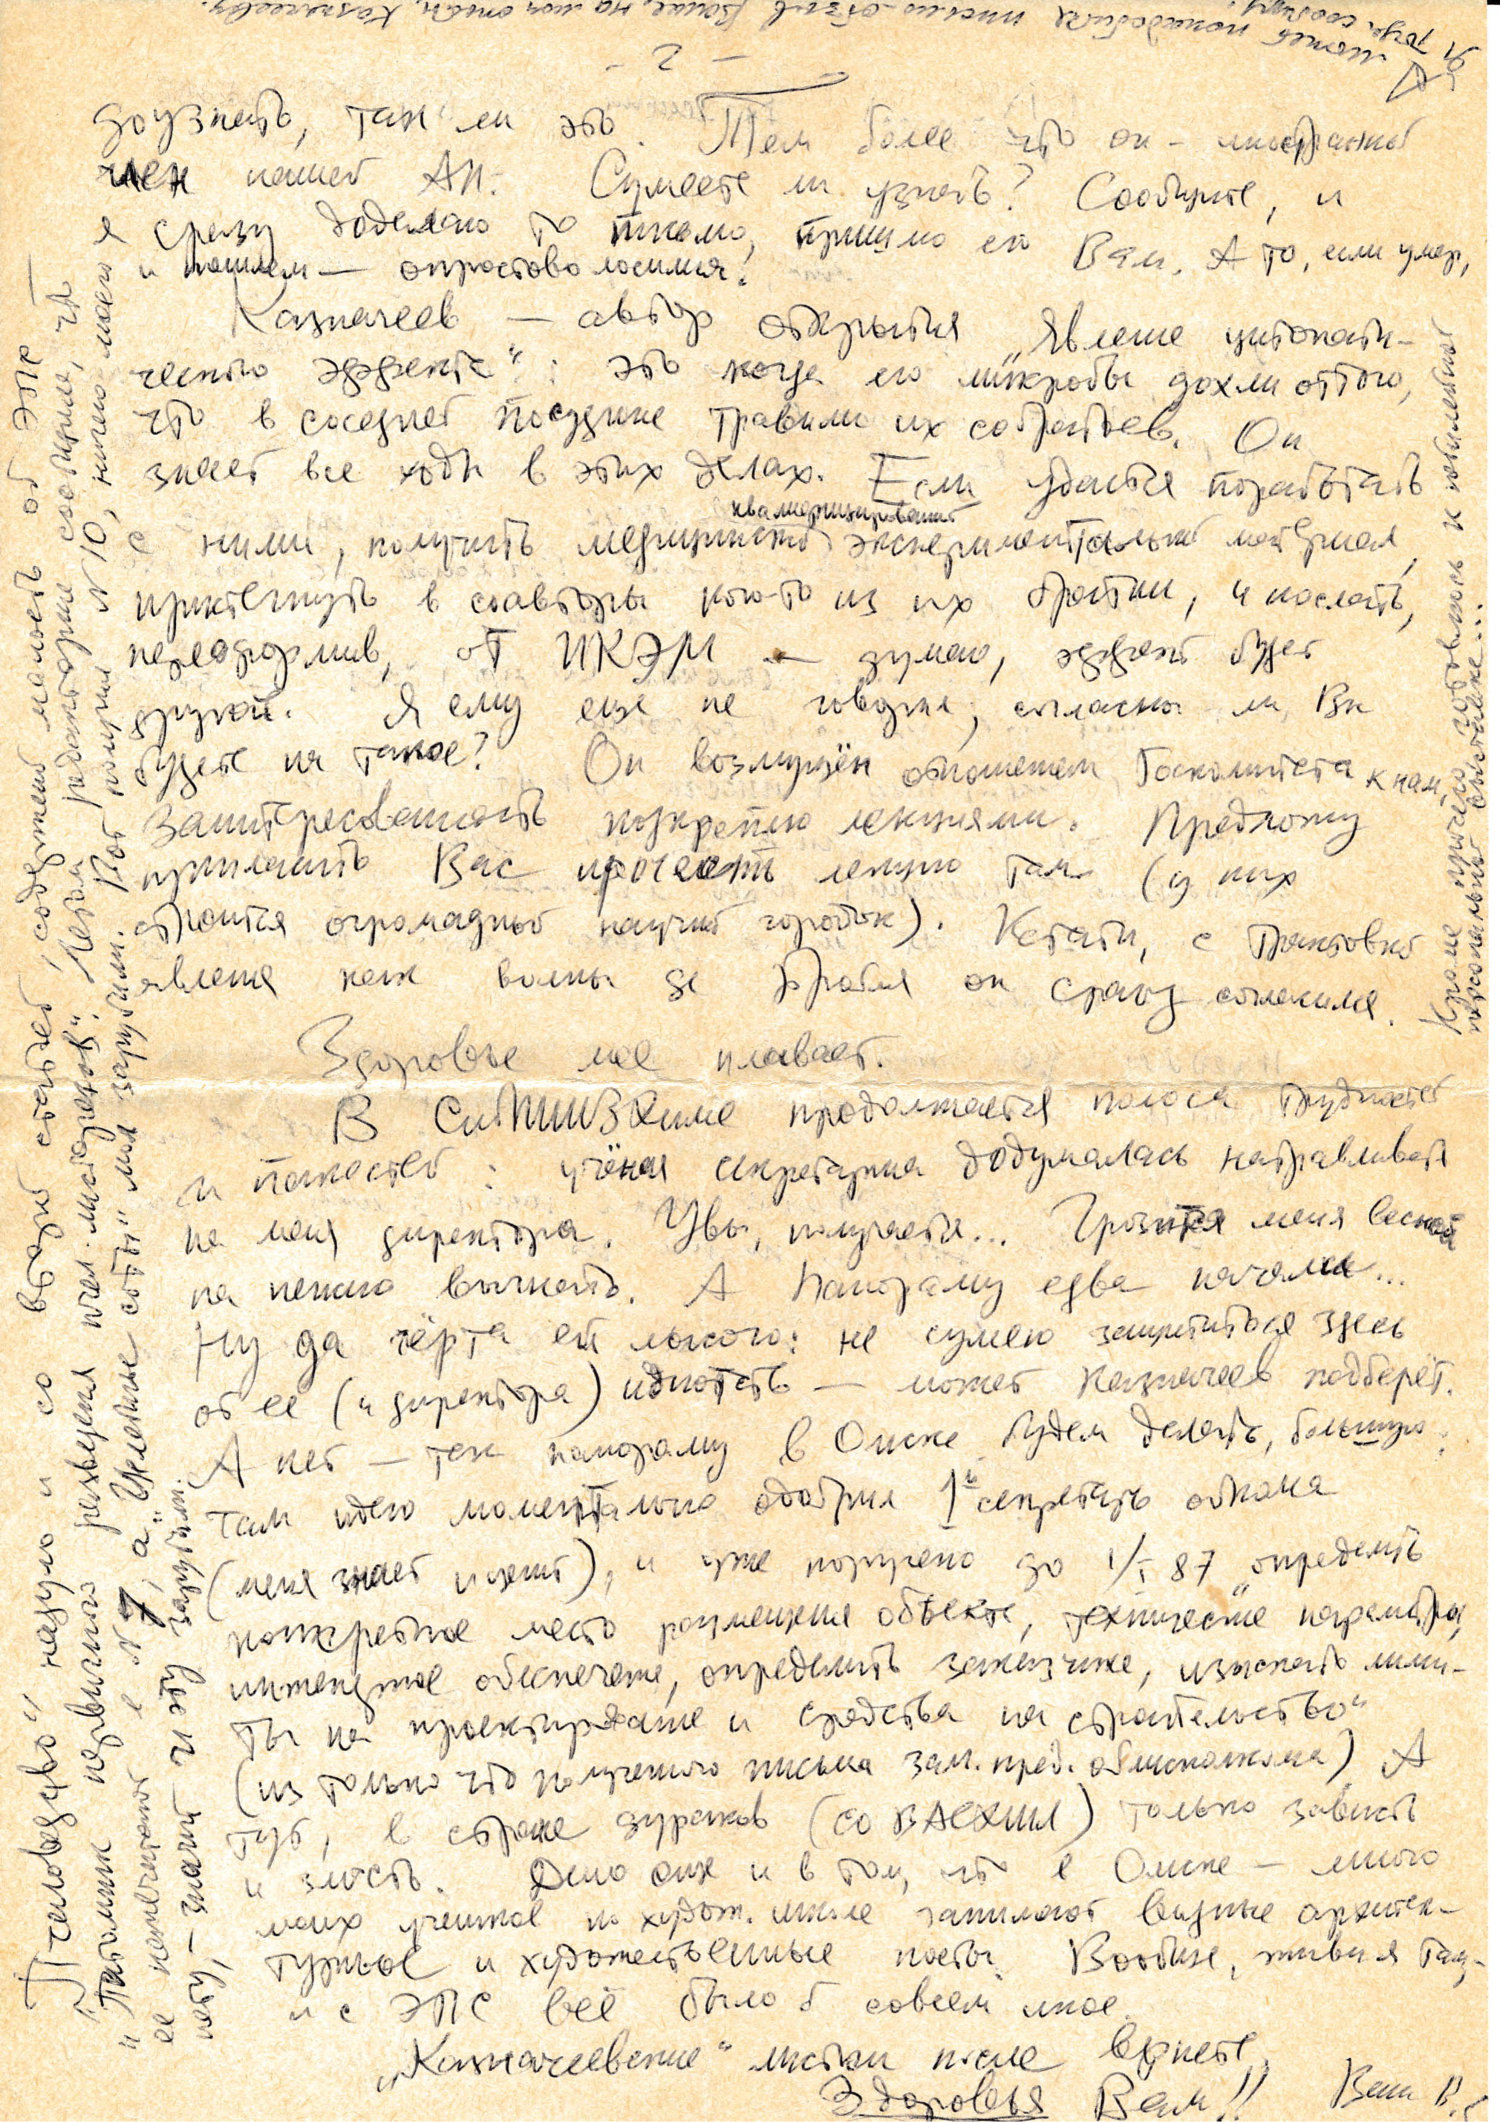 - 2 -
доузнать, так ли это. Тем более что он - иностранный
член нашей АН. Сумеете ли узнать? Сообщите, и
я сразу доделаю то письмо, пришлю его Вам. А то, если умер,
и пошлем — опростоволосимся!
Казначеев — автор открытия „Явление цитопати-
ческого эффекта“: это когда его микробы дохли оттого,
что в соседней посудине травили их собратьев. Он
знает все ходы в этих делах. Если удастся поработать
с ними, получить медицинский квалифицированный экспериментальный материал,
притянуть в соавторы кого-то из их братии, и послать,
переоформив, от ИКЭМ — думаю, эффект будет
другой. Я ему еще не говорил, согласны ли Вы
будете на такое? Он возмущён отношением Госкомитета к нам,
Заинтересованность подкреплю лекциями. Предложу
пригласить Вас прочесть лекцию там (у них
строится огромадный научный городок). Кстати, с трактовкой
явления как волны де Бройля он сразу согласился.
Здоровье мое плавает.
В СибНИИЗХиме продолжается полоса трудностей
и пакостей: учёная секретарша додумалась натравливать
на меня директора. Увы, получается... Грозится меня весной
на пенсию выгнать. А Панораму едва начали...
Ну да чёрта ей лысого: не сумею защититься здесь
от её (и директора) идиотств — может Казначеев подберёт.
А нет — так панораму в Омске будем делать, большую:
там идею моментально одобрил 1й секретарь обкома
(меня знает и ценит), и уже поручено до 1/I 87 „определить
конкретное место размещения объекта, технические параметры,
инженерное обеспечение, определить заказчика, изыскать лими-
ты на проектирование и средства на строительство“
(из только что полученного письма зам. пред. облисполкома). А
тут, в стране дураков (СО ВАСХНИЛ) только зависть
и злость. Дело еще и в том, что в Омске — много
моих учеников по худож. школе занимают видные архитек-
турные и художественные посты. Вообще, живя я там,
и с ЭПС всё было б совсем иное.
„Казначеевские“ листки после верните.
Здоровья Вам!! Ваш В.Г
„Пчеловодство“, надуло и со второй статьей, содержит малость об ЭПС —
„Питомник первичного разведения пчел-листорезов“. Летом редакторша сообщила, что
ее напечатают в № 7, а „Целебные соты“ мол зарубили. Вот получил № 10, ничего моего я
нету, — значит и эту зарубили.
Кроме прочего готовлюсь к юбилейной
персональной выставке...
А может понадобится письмо-отзыв Ваше, на мой отчет, Казначееву.
Я тогда сообщу.